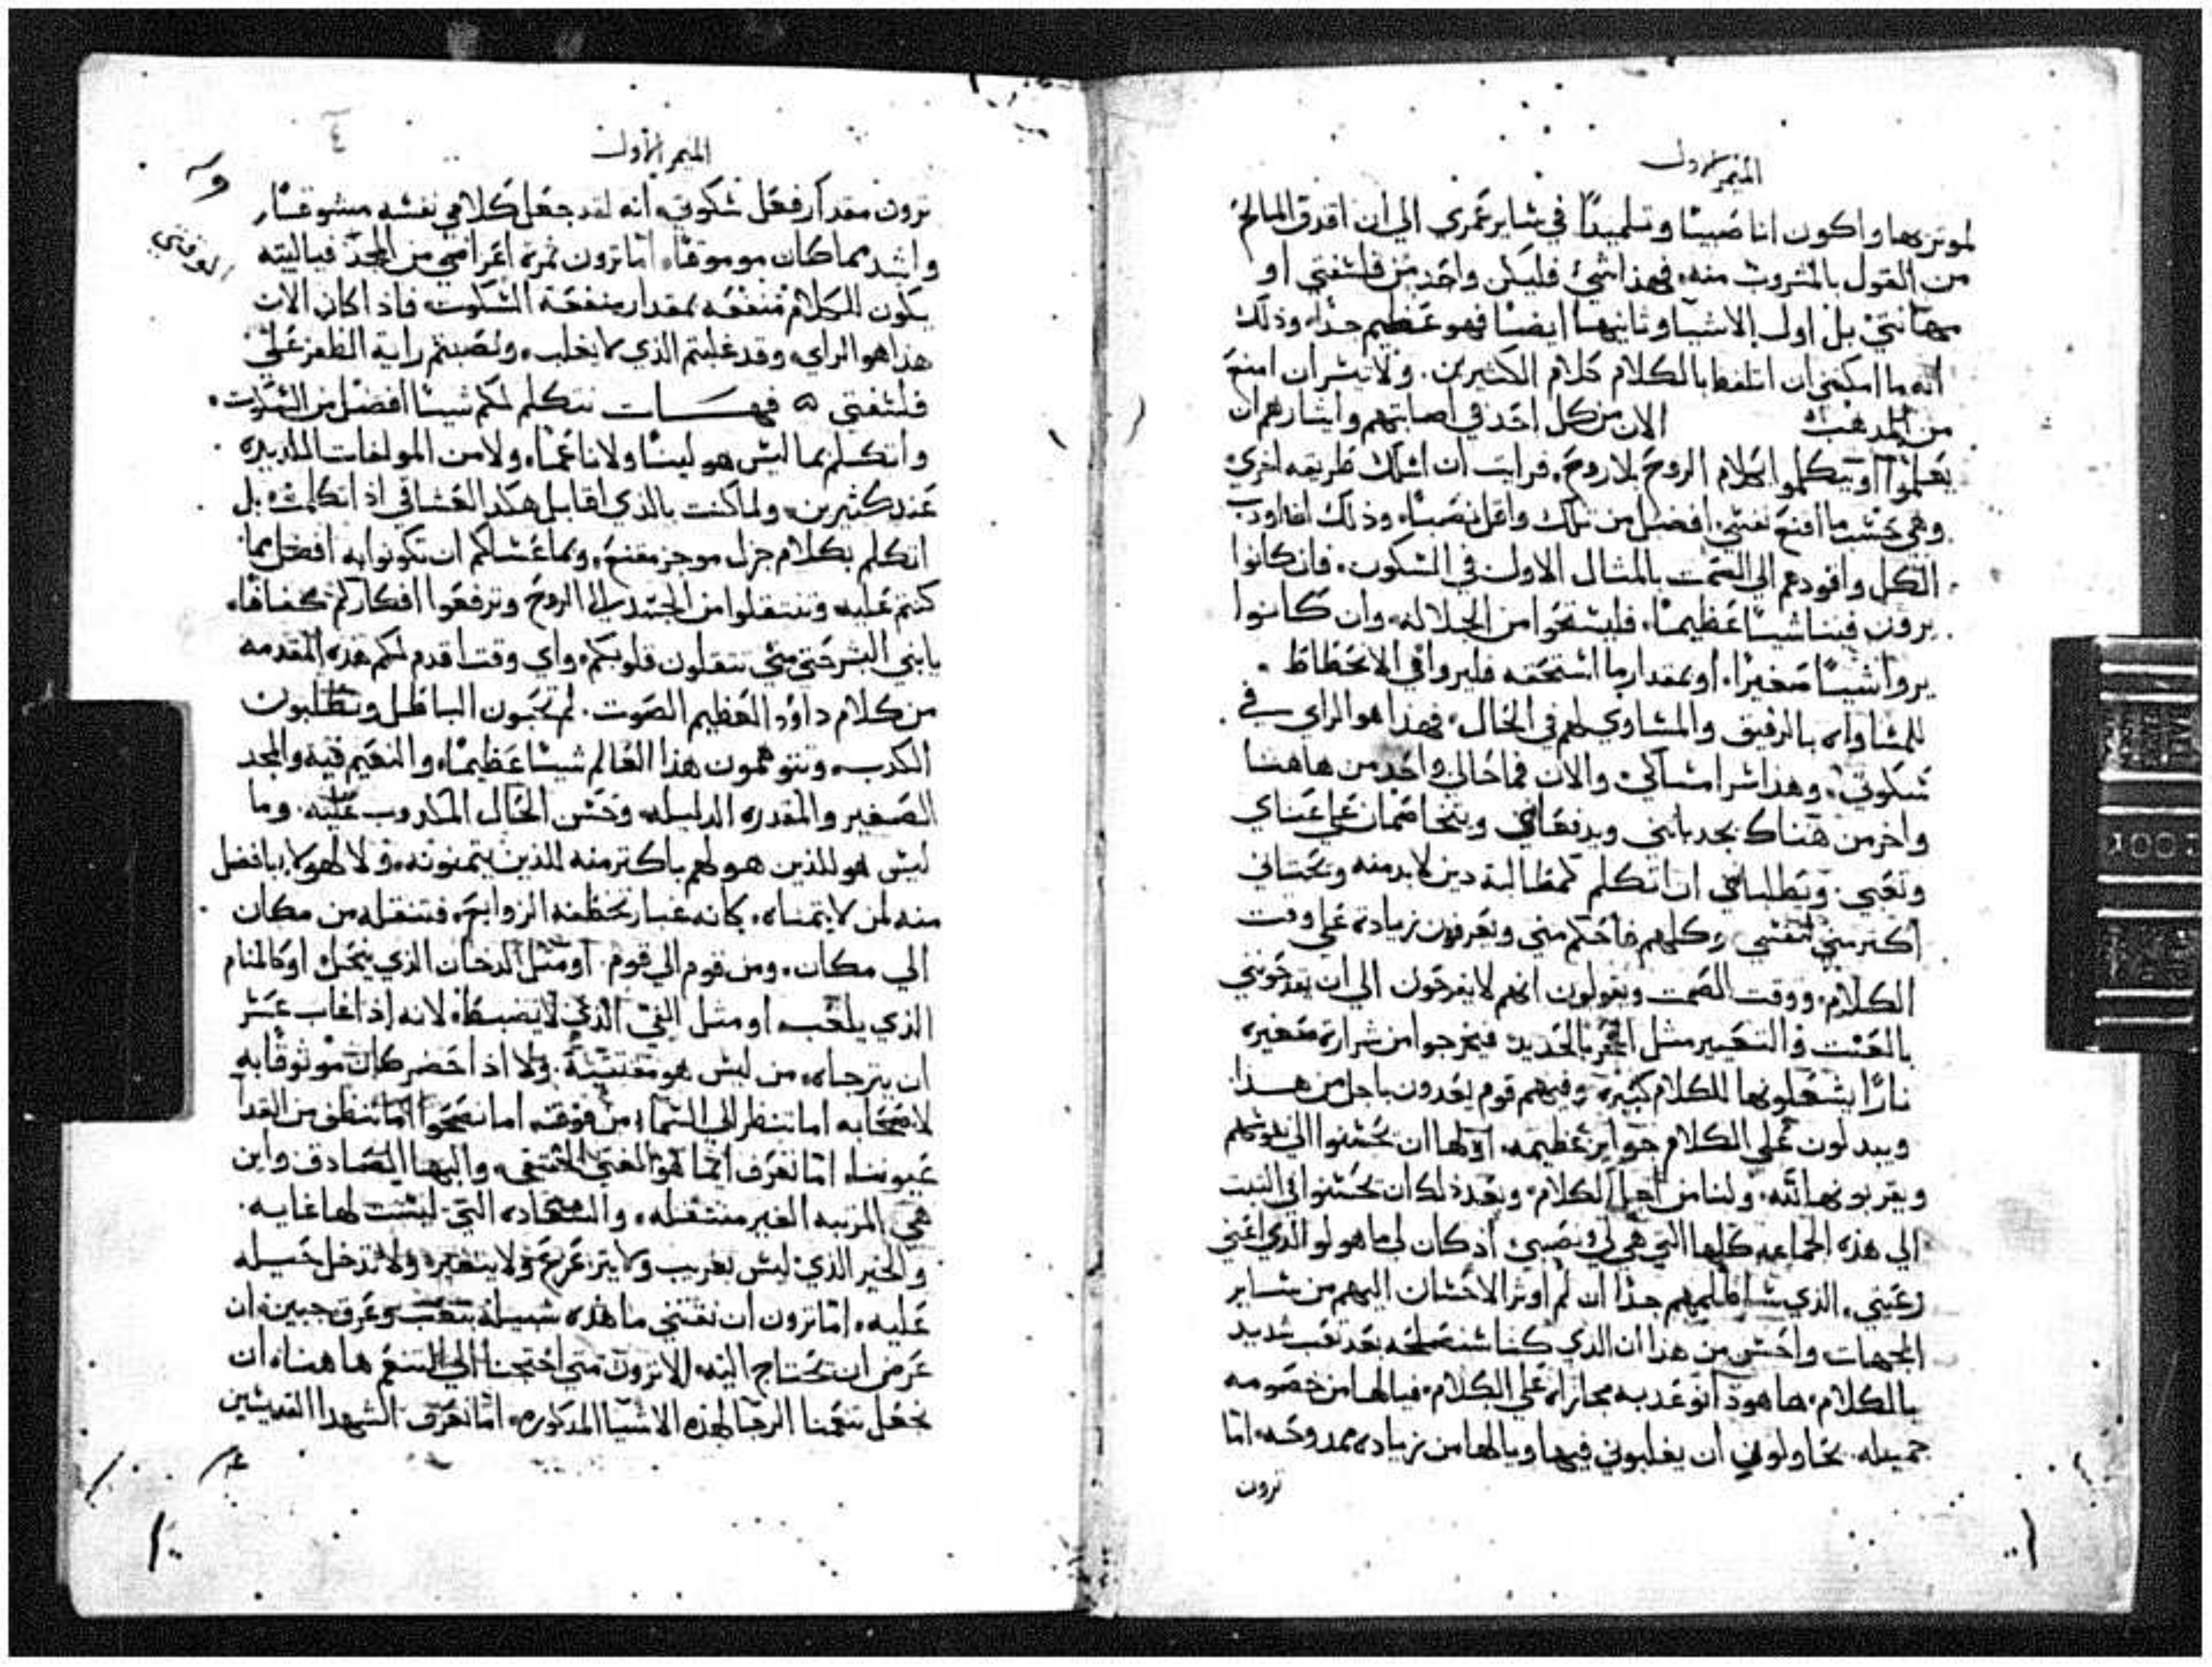 الميمر الاول
لموتزيها واكون انا صبيًا وتلميدًا في ساير عمري الي ان اقدق المالح
من القول بالمشروب منه، فهذا شي فليكن واحد من فلسفتي او
بل اول الاشيا وثانيها ايضًا فهو عظيم جدًا، وذلك
انه ما امكنني ان اتلفظ بالكلام كلام الكثيرين. ولا تيسر ان امنع
من المدهب الان من كل احد في اصابتهم وايثارهم ان
يعلموا او يتكلموا كلام الروح بلا روح، فرايت ان اسلك طريقه اخري
وهي حسب ما اقنع نفسي افضل من تلك واقل نصبًا، وذلك
الكل واقودهم الي الصمت بالمثال الاول في السكون، فان كانوا
يرون فينا شيًا عظيمًا، فليستحوا من الجلاله، وان كانوا
يروا شيًا صغيرًا، او بمقدار ما استحقه فليروا في الانحطاط
للمساواه بالرفيق والمساوي لهم في الحال، فهذا هو الراي في
سكوتي، وهذا سر امساكي والان فما حالي واحد من هاهنا
واخر من هناك يجدباني ويدفعاني ويتخاصمان علي عناي
وتعبي. ويطلباني ان اتكلم كمطالبة دين لا بد منه
اكتر مني لنفسي وكلهم احكم مني ويعرفون زيادة علي وقت
الكلام، ووقت الصمت ويقولون انهم لا يفرحون الي ان يقدحوني
بالعنت والتعيير مثل الحجر بالحديد فيخرجوا من شرارة صغيره
نارًا يشعلونها للكلام كبيره، وفيهم قوم يعدون باجل من هذا
ويبدلون علي الكلام جوايز عظيمه، اولها ان يحسنوا الي نفوسهم
ويقربونها لله، ولنا من اجل الكلام، وبعد ذلك ان يحسنوا في البيت
الي هذه الجماعه كلها التي هي لي ونصيبي، اذ كان لي ما هو لوالدي اعني
رعيتي، الذي جدًا ان لم اوثر الاحسان اليهم من ساير
الجهات واحسن من هذا ان الذي كنا بعد تعب شديد
بالكلام، ها هوذا نوعد به مجازاه علي الكلام، فيا لها من خصومه
جميله، يحاولوني ان يغلبوني فيها ويا لها من زياده ممدوحه، اما
ترون
الميمر الاول
ترون مقدار فعل سكوتي، انه لقد جعل كلامي نفسه
واشد مما كان موموقًا، اما ترون ثمرة اغراضي من المجد فياليته
يكون للكلام منفعه بمقدار منفعة السكوت، فاذا كان الان
هذا هو الراي، وقد غلبتم الذي لا يغلب، ونصبتم راية الظفر علي
فلسفتي ه فهات نتكلم لكم شيا افضل من السكوت،
واتكلم بما ليس هو لينًا ولا ناعمًا، ولا من المولفات اللديده
عند كثيرين، ولما كنت بالذي اقابل هكذا العشاقي اذ اتكلمت، بل
اتكلم بكلام جزل موجز مقنع، وبما عساكم ان تكونوا به افضل مما
كنتم عليه وتنتقلوا من الجسد الي الروح وترفعوا افكاركم كفافًا،
يا بني البشر حتي متي تثقلون قلوبكم، واي وقت اقدم لكم هذه المقدمه
من كلام داوود العظيم الصوت. لم تحبون الباطل وتطلبون
الكدب، وتتوهمون هذا العالم شيًا عظيمًا، والنعيم فيه والمجد
الصغير والمقدره الدليله وحسن الحال المكدوب عليه، وما
ليس هو للذين هو لهم باكتر منه للذين يتمنونه، ولا لهولا بافضل
منه لمن لا يتمناه، كانه غبار تخطفه الزوابع، فتنقله من مكان
الي مكان، ومن قوم الي قوم، او مثل الدخان الذي ينحل او كالمنام
الذي يلعب، او مثل الفي الذي لا ينضبط، لانه اذا غاب عسر
ان يترجاه، من ليس هو مقتنيه، ولا اذا حضر كان موثوقًا به
لاصحابه اما تنظر الي السماء من فوقنه اما تصحوا اما تنظف من القدا
عيوننا، اما تعرف ايما هو الغني الحقيقي، والبها الصادق واين
هي المرتبه الغير منتقله، والسعاده التي ليست لها غايه.
والخير الذي ليس بغريب ولا يتزعزع ولا يتغير، ولا تدخل حيله
عليه، اما ترون ان نقتني ما هذه سبيله بتعب وعرق جبين، ان
عرض ان نحتاج اليه، الا ترون متي احتجنا الي التنعم هاهنا، ان
نجعل تنعمنا الرجا لهذه الاشيا المدكوره، اما نعرف الشهدا القديسين